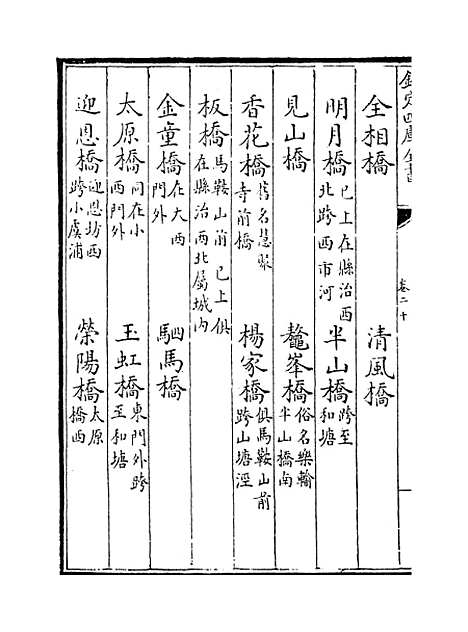 欽定四庫全書 卷二十
全相橋 清風橋
明月橋 已上在縣治西北跨西市河 半山橋 跨至和塘
見山橋 鼇峯橋 俗名樂輸半山橋南
香花橋 舊名慧聚寺前橋 楊家橋 俱馬鞍山前跨山塘涇
板橋 馬鞍山前已上俱在縣治西北屬城内
金童橋 在大西門外 駟馬橋
太原橋 同在小西門外 玉虹橋 東門外跨至和塘
迎恩橋 迎恩坊西跨小虞浦 榮陽橋 太原橋西